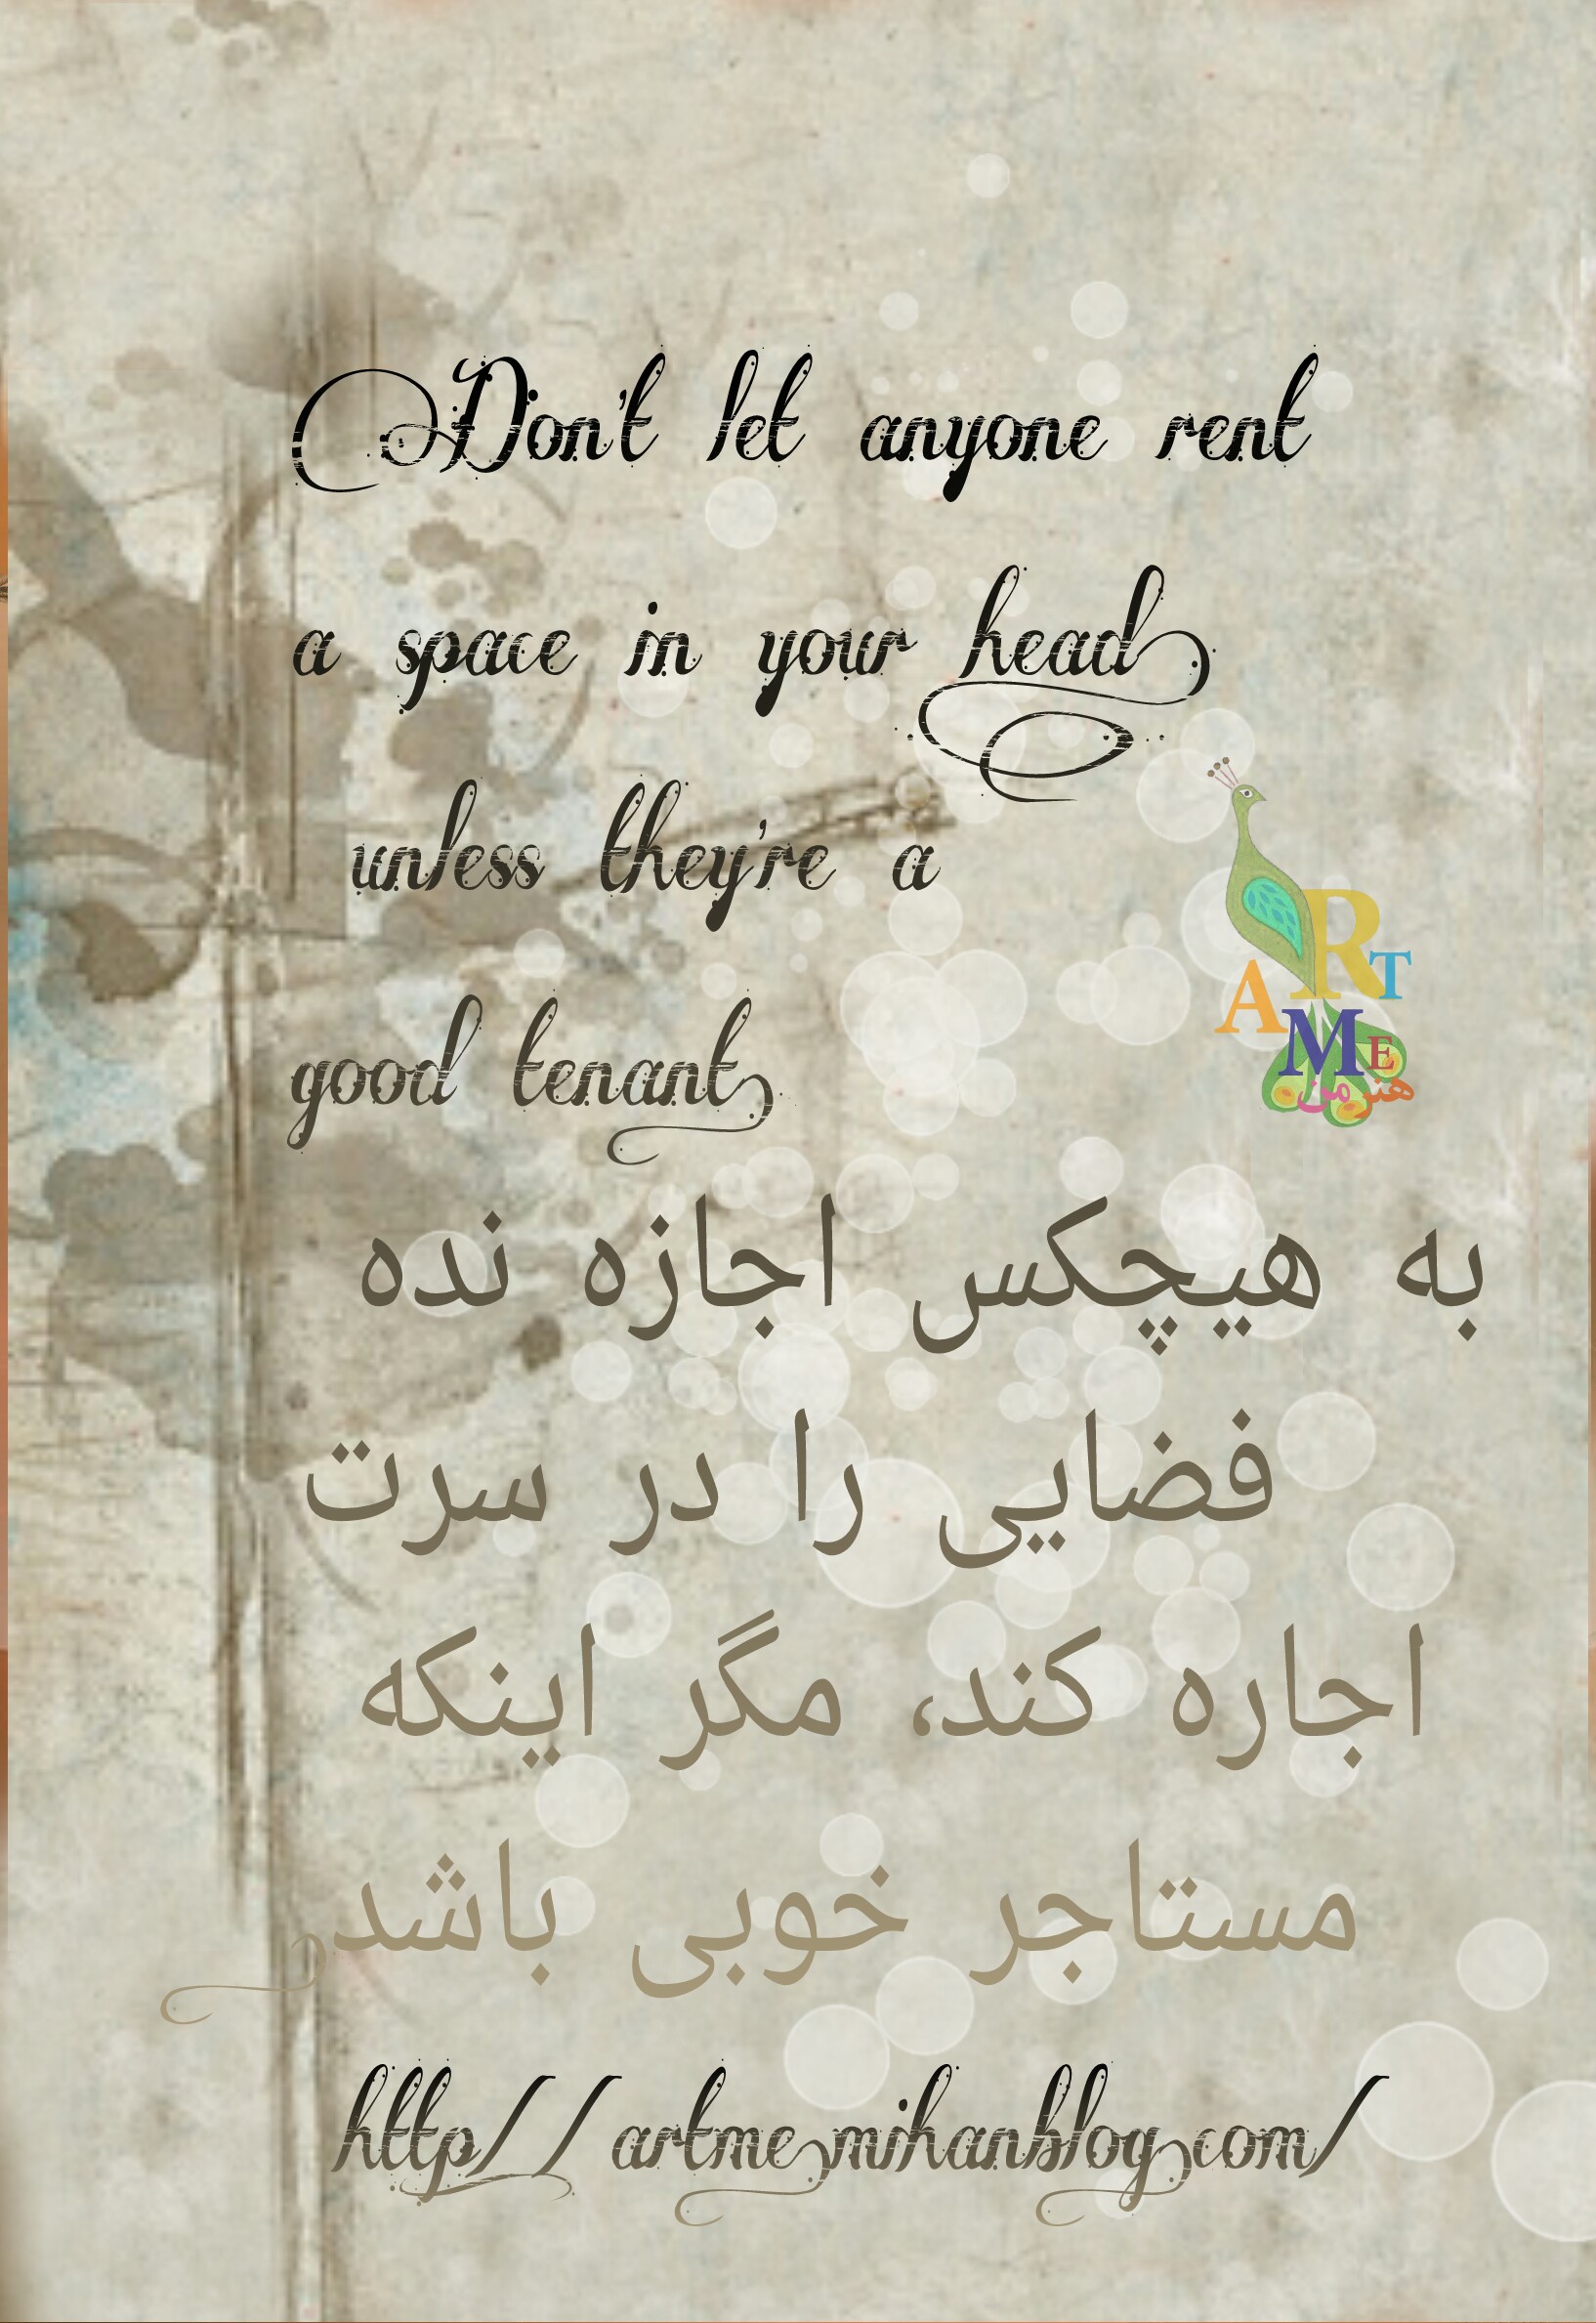 Don't let anyone rent
a space in your head
unless they're a
good tenant
ART
A ME
هنر من
به هیچکس اجازه نده
فضایی را در سرت
اجاره کند، مگر اینکه
مستاجر خوبی باشد
http// artme.mihanblog.com/